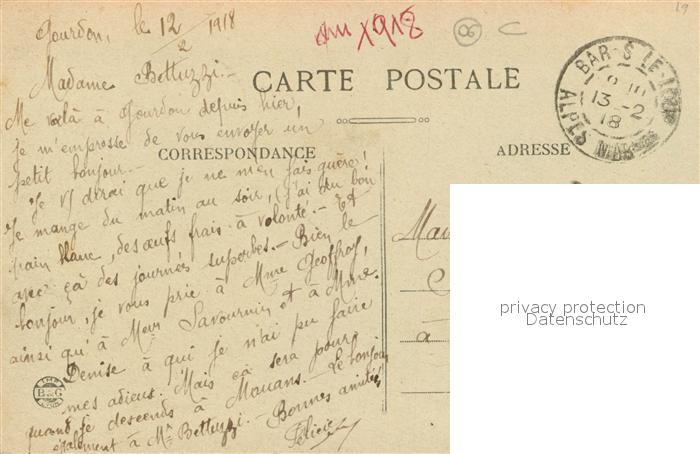 Gourdon, le 12/2 1918
Madame Bettuzzi. -
Me voilà à Gourdon depuis hier,
je m'empresse de vous envoyer un
petit bonjour. -
Je vs dirai que je ne m'en fais guère!
Je mange du matin au soir, (j'ai du bon
pain blanc, des œufs frais à volonté. - Et
avec ça des journées superbes. - Bien le
bonjour, je vous prie à Mme Geoffroy,
ainsi qu'à Savournin et à Mme.
Denise à qui je n'ai pu faire
mes adieux. Mais ça sera pour
quand je descends à Mouans. - Le bonjour
également à Mr Bettuzzi. - Bonnes amitiés
Félicie
1918
06
C
CARTE POSTALE
CORRESPONDANCE
ADRESSE
BAR-S LE-LOUP
13-2
18
ALPES MARMES
B G
à
privacy protection
Datenschutz